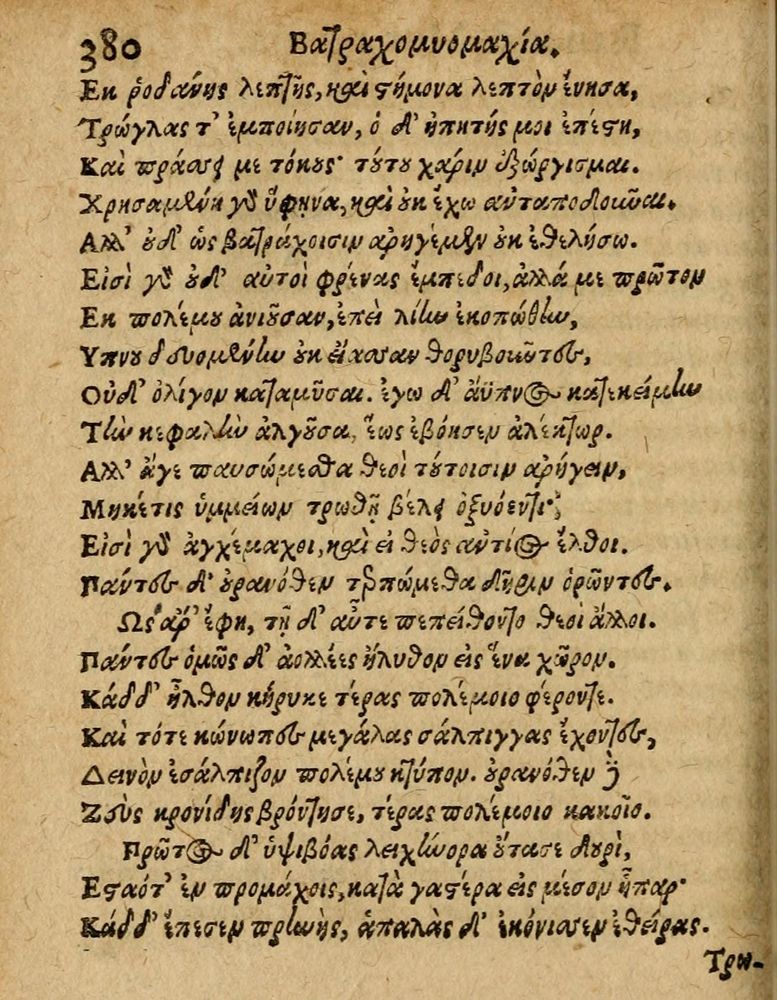 380 Βατραχομυομαχία.
Εκ ῥοδάνης λεπτῆς, καὶ στήμονα λεπτὸν ἔνησα,
Τρώγλας τ' ἐμποίησαν, ὁ δ' ἠπητής μοι ἐπέστη,
Καὶ πράσσει με τόκους· τούτου χάριν ἐξώργισμαι.
Χρησαμένη γὰρ ὕφηνα, καὶ οὐκ ἔχω ἀνταποδοῦναι.
Αλλ' οὐδ' ὡς βατράχοισιν ἀρηγέμεν οὐκ ἐθελήσω.
Εἰσὶ γὰρ οὐδ' αὐτοὶ φρένας ἔμπεδοι, ἀλλά με πρῶτον
Εκ πολέμου ἀνιοῦσαν, ἐπεὶ λίην ἐκοπώθην,
Υπνου δευομένην οὐκ εἴασαν θορυβοῦντες,
Οὐδ' ὀλίγον καταμῦσαι. ἐγω δ' ἄϋπνος κατεκείμην
Τὴν κεφαλὴν ἀλγοῦσα, ἕως ἐβόησεν ἀλέκτωρ.
Αλλ' ἄγε παυσώμεσθα θεοὶ τούτοισιν ἀρήγειν,
Μηκέτις ὑμμείων τρωθῇ βέλει ὀξυόεντι·
Εἰσὶ γὰρ ἀγχέμαχοι, καὶ εἰ θεὸς ἀντίος ἔλθοι.
Πάντες δ' οὐρανόθεν τερπώμεθα δῆριν ὁρῶντες.
Ως ἄρ' ἔφη, τῇ δ' αὖτε πεπείθοντο θεοὶ ἄλλοι.
Πάντες ὁμῶς δ' ἀολλέες ἤλυθον εἰς ἕνα χῶρον.
Κάδδ' ἦλθον κήρυκε τέρας πολέμοιο φέροντε.
Καὶ τότε κώνωπες μεγάλας σάλπιγγας ἔχοντες,
Δεινὸν ἐσάλπιζον πολέμου κτύπον. οὐρανόθεν δὲ
Ζεὺς κρονίδης βρόντησε, τέρας πολέμοιο κακοῖο.
Πρῶτος δ' ὑψιβόας λειχήνορα οὔτασε δουρὶ,
Εσταότ' ἐν προμάχοις, κατὰ γαστέρα εἰς μέσον ἧπαρ·
Κάδδ' ἔπεσεν πρηνὴς, ἁπαλὰς δ' ἐκόνισεν ἐθείρας.
Τρω-